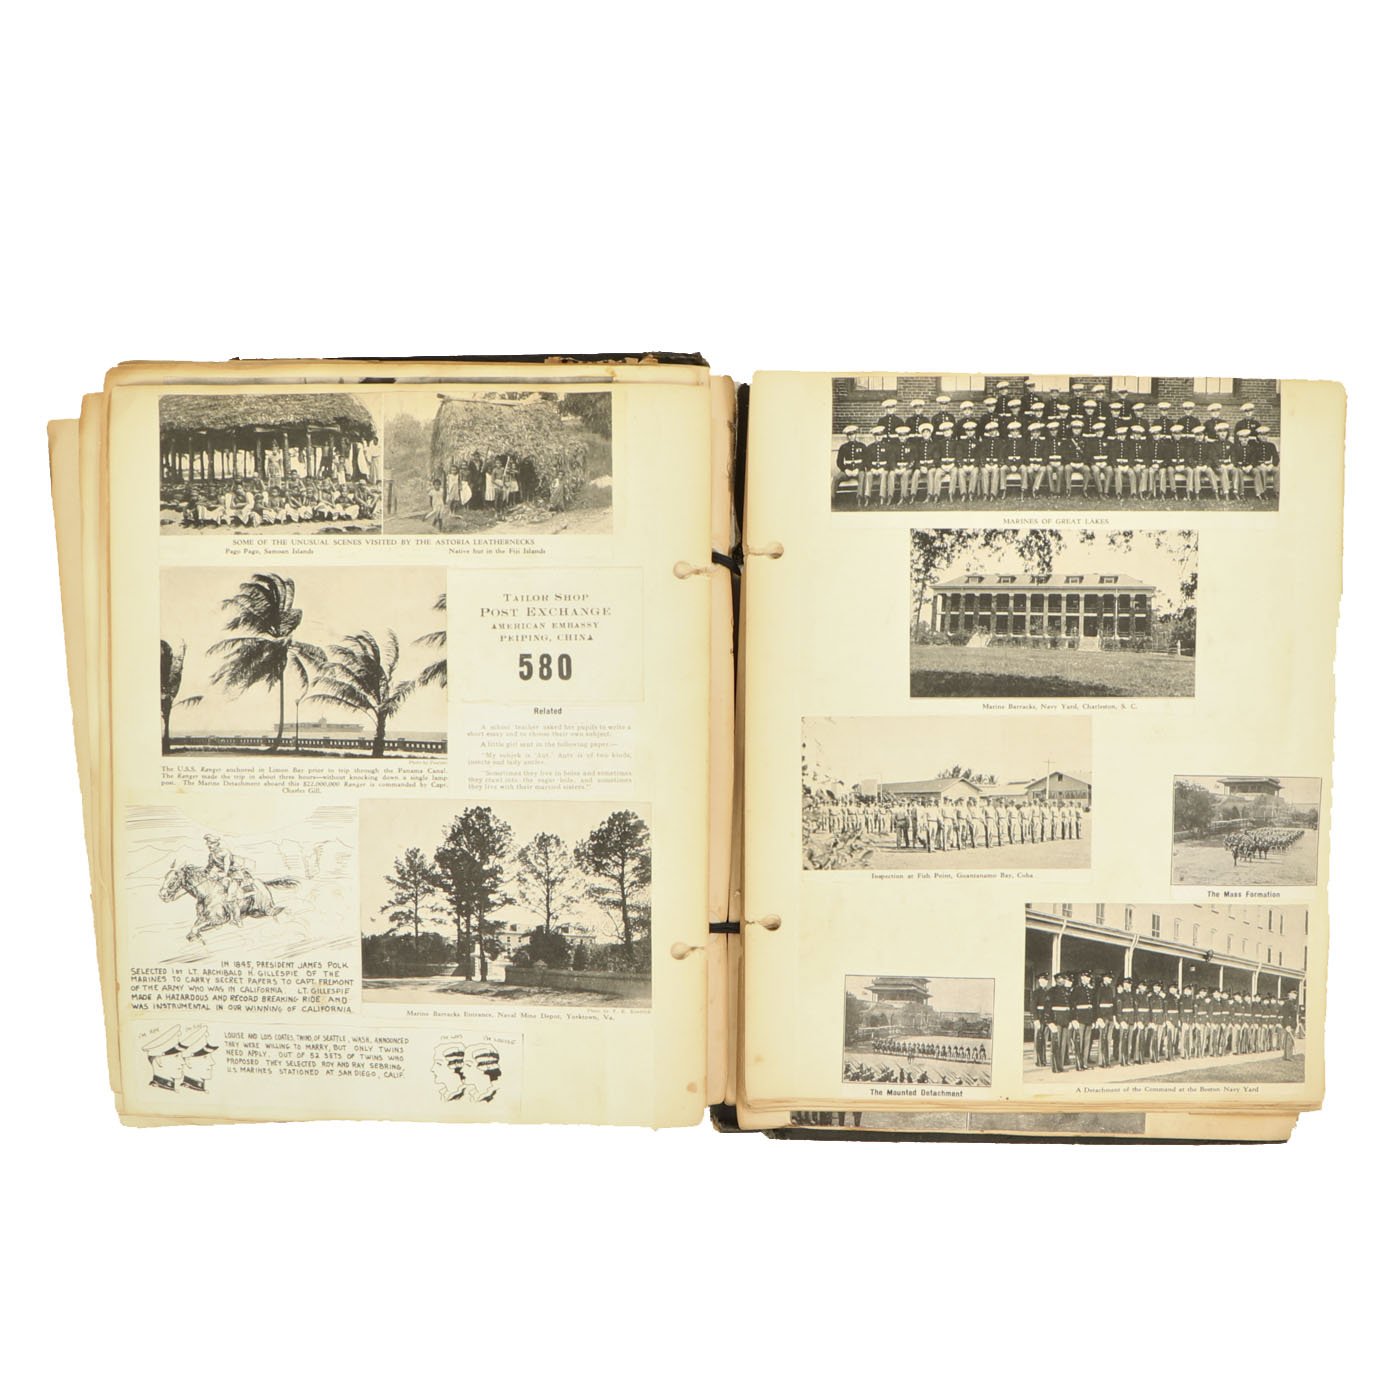 SOME OF THE UNUSUAL SCENES VISITED BY THE ASTORIA LEATHERNECKS
Pago Pago, Samoan Islands
Native hut in the Fiji Islands
The U.S.S. Ranger anchored in Limon Bay prior to trip through the Panama Canal.
The Ranger made the trip in about three hours—without knocking down a single lamp
post. The Marine Detachment aboard this $22,000,000 Ranger is commanded by Capt.
Charles Gill.
TAILOR SHOP
POST EXCHANGE
AMERICAN EMBASSY
PEIPING, CHINA
580
Related
A school teacher asked her pupils to write a
short essay and to choose their own subject.
A little girl sent in the following paper:—
"My subjek is 'Ant.' Ants is of two kinds,
insects and lady uncles.
"Sometimes they live in holes and sometimes
they crawl into the sugar bole, and sometimes
they live with their married sisters."
IN 1845, PRESIDENT JAMES POLK
SELECTED 1ST LT. ARCHIBALD H. GILLESPIE OF THE
MARINES TO CARRY SECRET PAPERS TO CAPT. FREMONT
OF THE ARMY WHO WAS IN CALIFORNIA. LT. GILLESPIE
MADE A HAZARDOUS AND RECORD BREAKING RIDE AND
WAS INSTRUMENTAL IN OUR WINNING OF CALIFORNIA.
Marine Barracks Entrance, Naval Mine Depot, Yorktown, Va.
I'M ROY
I'M RAY
LOUISE AND LOIS COATES, TWINS, OF SEATTLE, WASH., ANNOUNCED
THEY WERE WILLING TO MARRY, BUT ONLY TWINS
NEED APPLY. OUT OF 52 SETS OF TWINS WHO
PROPOSED THEY SELECTED ROY AND RAY SEBRING,
U.S. MARINES STATIONED AT SAN DIEGO, CALIF.
I'M LOIS
I'M LOUISE
MARINES OF GREAT LAKES
Marine Barracks, Navy Yard, Charleston, S. C.
Inspection at Fish Point, Guantanamo Bay, Cuba
The Mass Formation
The Mounted Detachment
A Detachment of the Command at the Boston Navy Yard